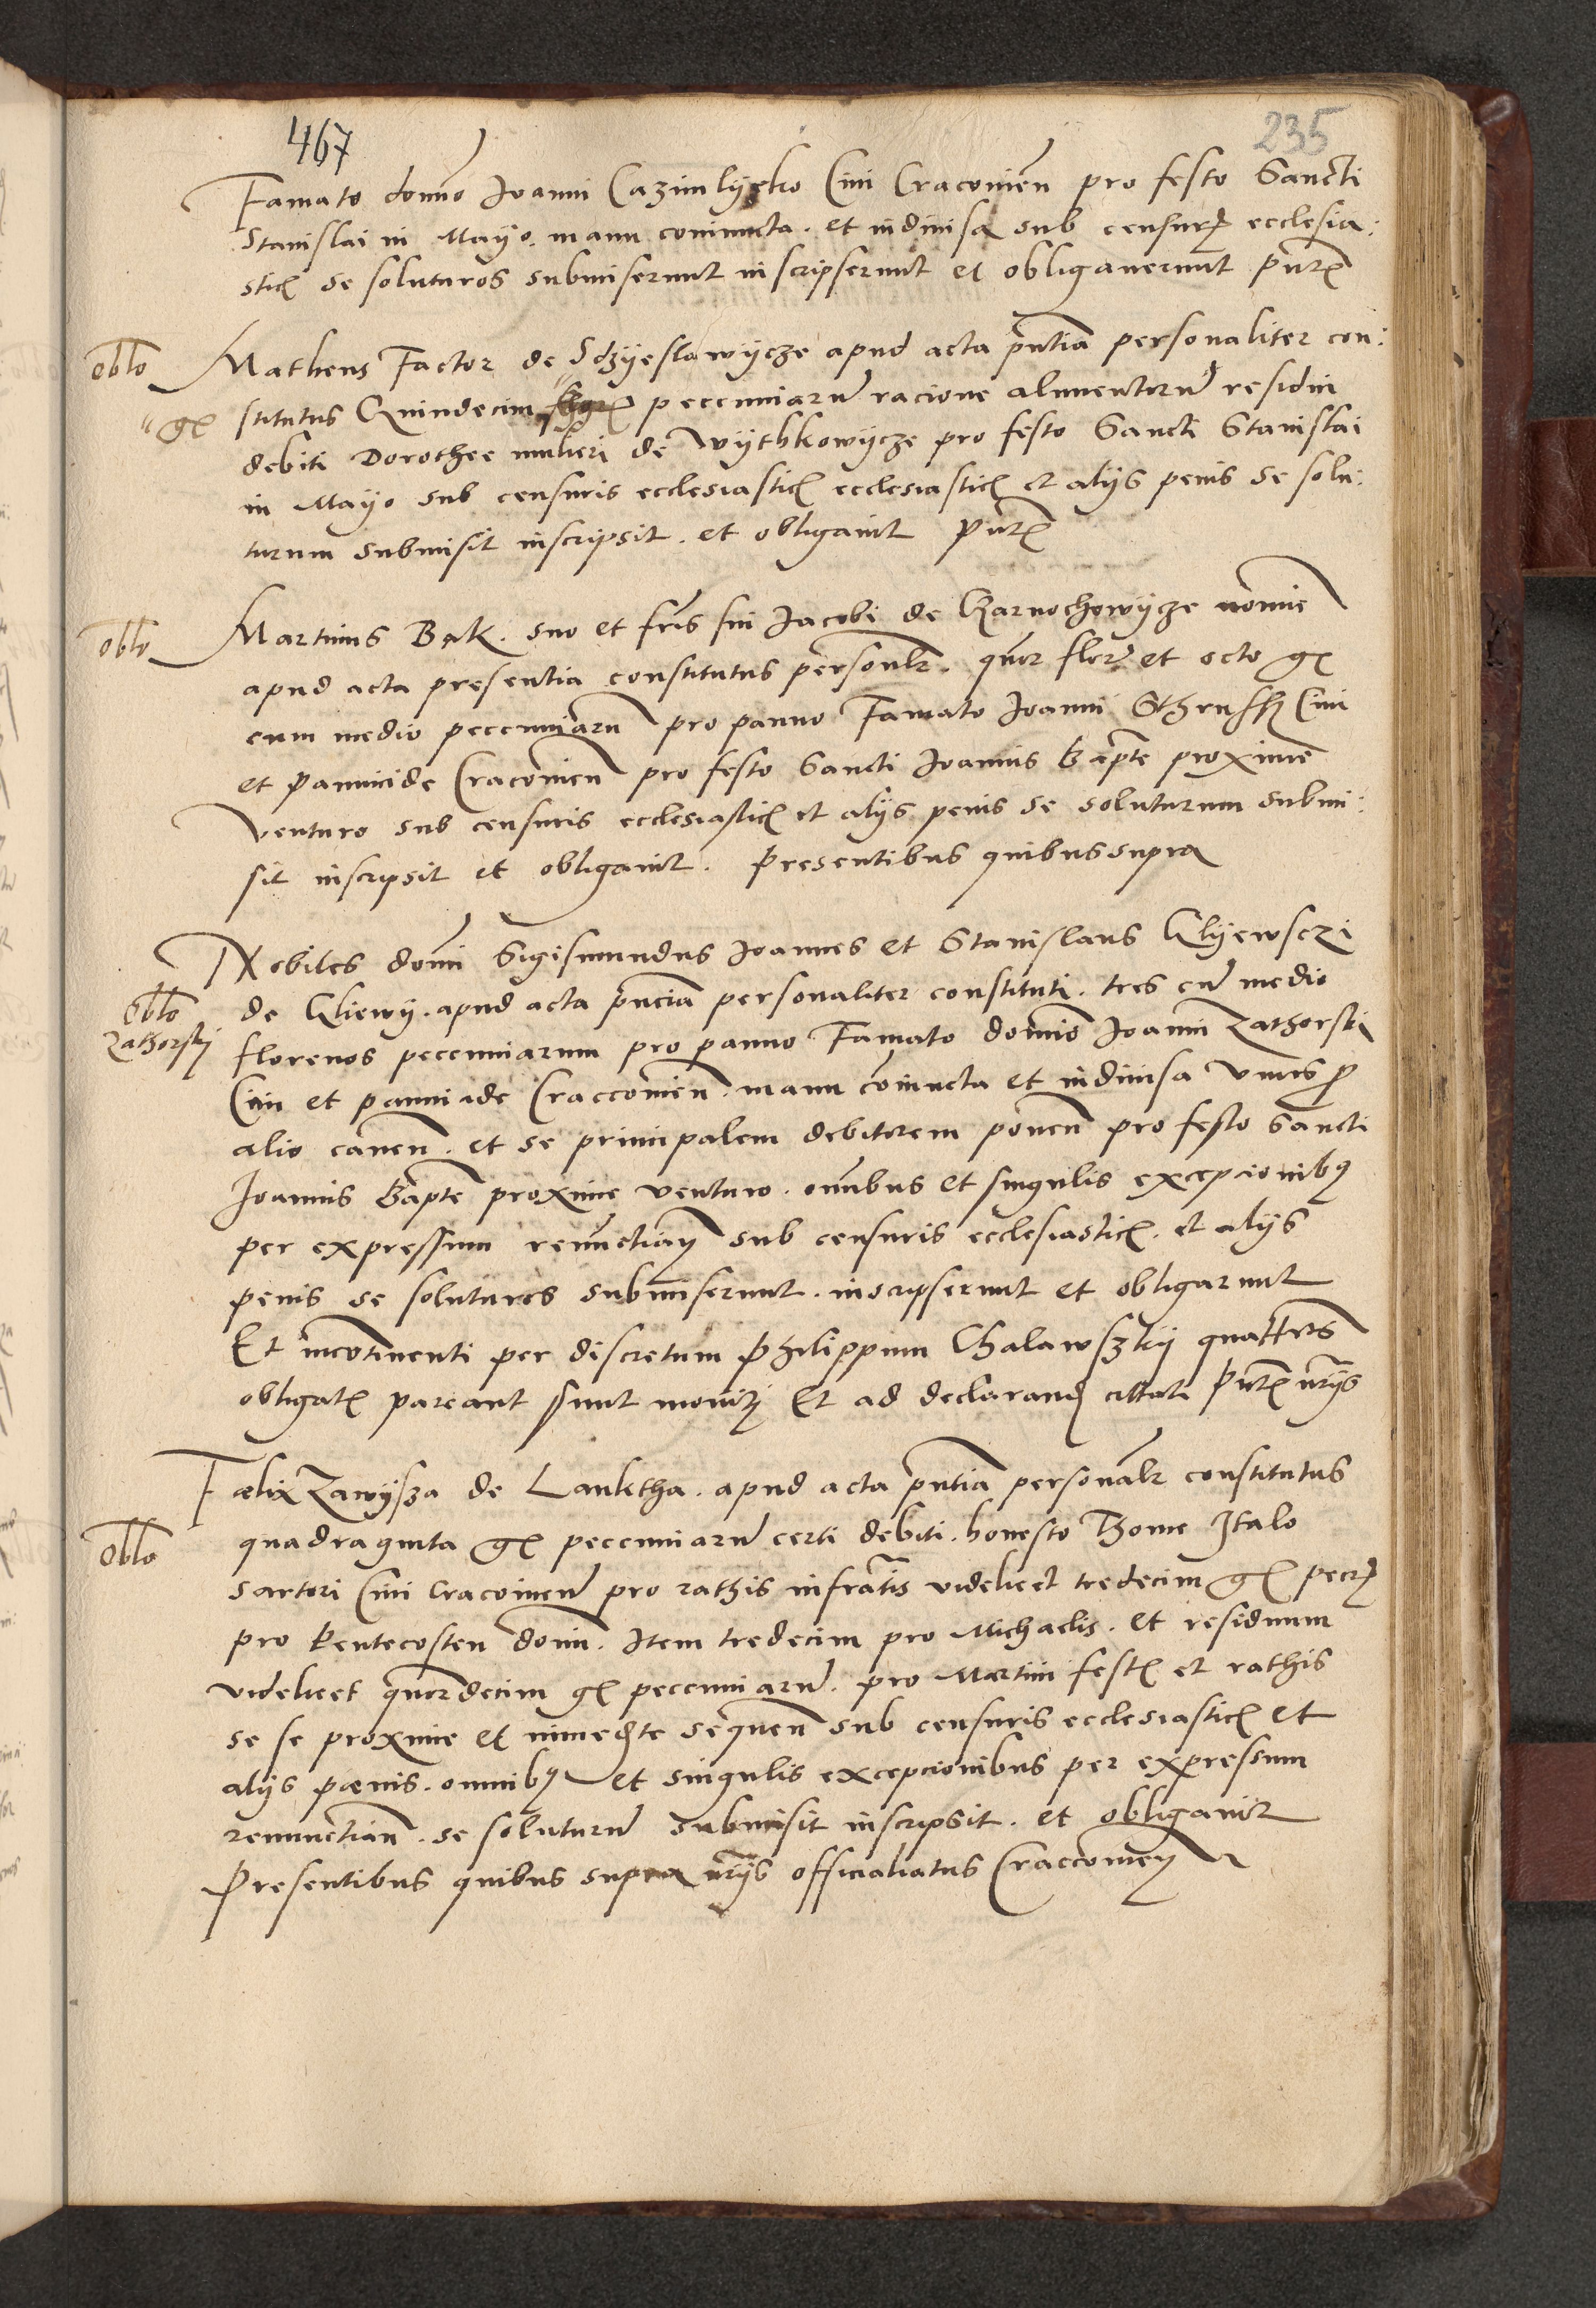 467
235
Famato domno Joanni Cazimlyesko Civi Cracovien pro festo Sancti
Stanislai in Mayo. manu coniuncta. et indivisa sub censur ecclesia:
stic se soluturos submiserunt inscripserunt et obligaverunt pntx
oblo Matheus Factor de Sdzyeslawycze apud acta pntia personaliter con:
gr stitutus Quindecim pecuniaru racione alimentoru residui
debiti Dorothee mulieri de Wythkowycze pro festo Sancti Stanislai
in Mayo sub censuris ecclesiastic ecclesiastic et alys penis se solu:
turum submisit inscripsit. et obligavit pntx
oblo Martinus Bąk. suo et fris sui Jacobi de Czarnochowycze nomie
apud acta presentia constitutus personlr. quor flor et octo gr
cum medio pecuniaru pro panno Famato Joanni Civi
et Pannicide Cracovien pro festo Sancti Joannis Bapte proxime
venturo sub censuris ecclesiastic et alys penis se soluturum submi:
sit inscripsit et obligavit. Presentibus quibus supra
Nobiles domi Sigismundus Joannes et Stanislaus Klyewsczi
oblo de Kliewy. apud acta pnciam personaliter constituti. tres cu medio
Zathorski florenos pecuniarum pro panno Famato domino Joanni Zathorski
Civi et panniide Craccovien. manu coniuncta et indivisa unus p
alio caven. et se principalem debitorem ponen pro festo Sancti
Joannis Bapte proxime venturo. omnibus et singulis excepcionib9
per expressum renunctian sub censuris ecclesiastic. et alys
penis se soluturos submiserunt. inscripserunt et obligarunt
Et incontinenti per discretum Philippum Chalawszky quattus
obligatx pareant sunt monit Et ad declarand citati pntx nrys
Fælix Zawysza de Lanktha. apud acta pntia personalr constitutus
oblo quadraginta gr pecuniaru certi debiti. honesto Thome Italo
sartori Civi Cracovien pro rathis infratis videlicet tredecim gr pecu
pro Pentecosten domi. Item tredecim pro Michaelis. et residuum
videlicet quordecim gr pecuniaru. pro Martini fest et rathis
se se proxime et immedte sequen sub censuris ecclesiastic et
alys pænis. omnib9 et singulis excepcionibus per expressum
renunctian. se soluturu submisit inscripsit. et obligavit
Presentibus quibus supra nrys officialiatus Craccovien